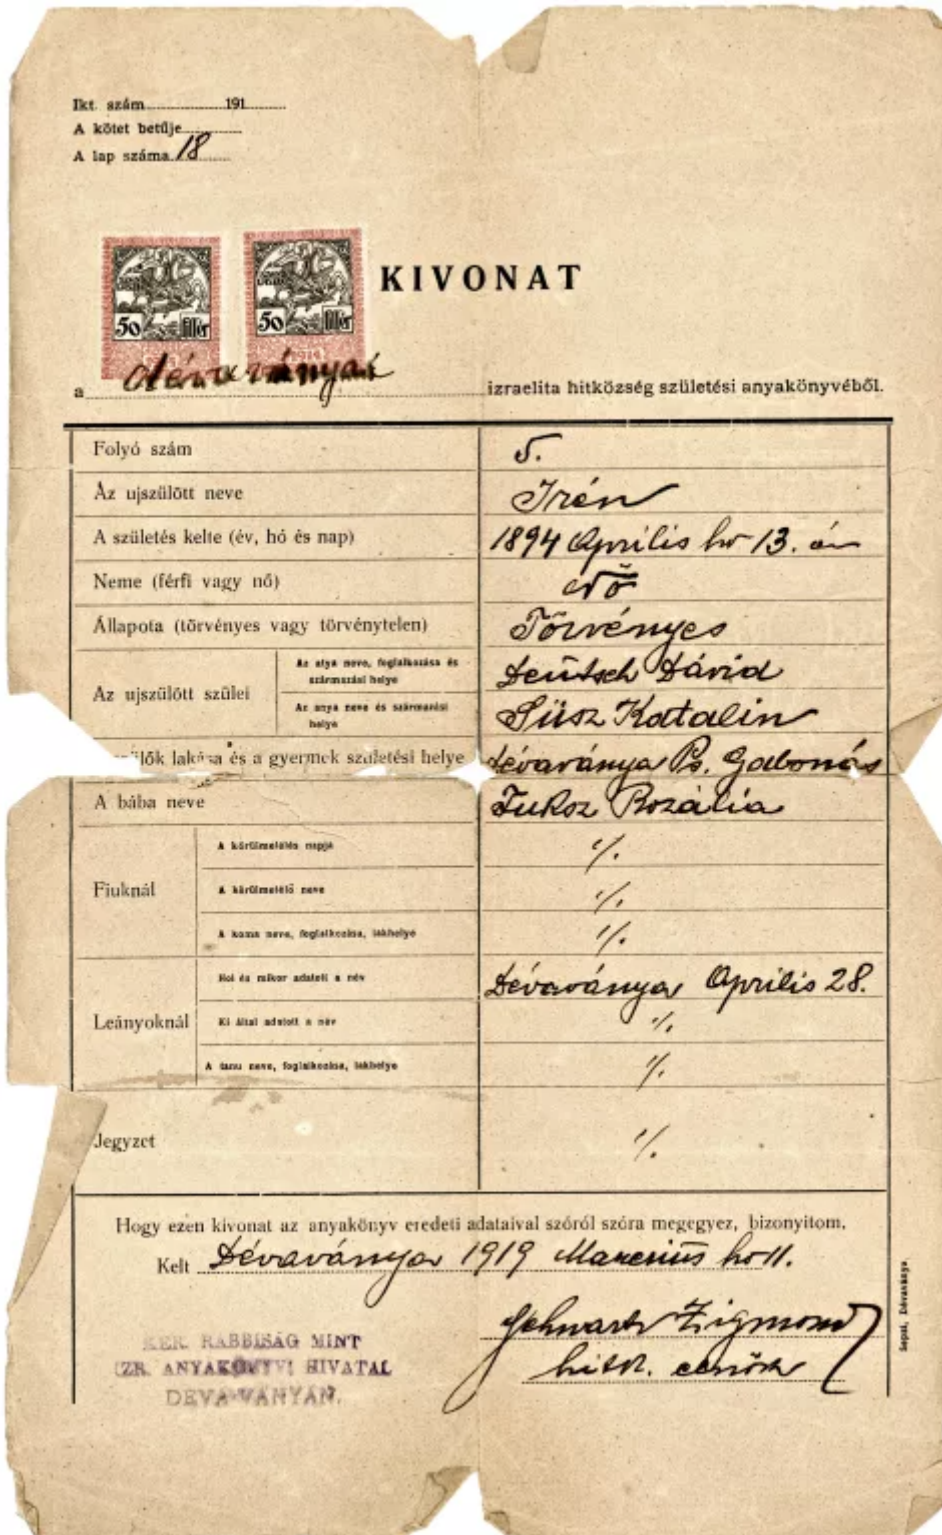 Ikt. szám 191
A kötet betűje
A lap száma 18
50 fillér 50 fillér
KIVONAT
a dévaványai izraelita hitközség születési anyakönyvéből.
Folyó szám 5.
Az ujszülött neve Irén
A születés kelte (év, hó és nap) 1894 Április hó 13. án
Neme (férfi vagy nő) Nő
Állapota (törvényes vagy törvénytelen) Törvényes
Az ujszülött szülei
Az atya neve, foglalkozása és származási helye Deutsch Dávid
Az anya neve és származási helye Süsz Katalin
lakása és a gyermek születési helye Dévaványa Ps. Gabonás
A bába neve Rozália
Fiuknál
A körülmetélés napja %.
A körülmetélő neve %.
A koma neve, foglalkozása, lakhelye %.
Leányoknál
Hol és mikor adatott a név Dévaványa Április 28.
Ki által adatott a név %.
A tanu neve, foglalkozása, lakhelye %.
Jegyzet %.
Hogy ezen kivonat az anyakönyv eredeti adataival szóról szóra megegyez, bizonyitom.
Kelt Dévaványa 1919 Marcius hó 11.
Schwartz Zigmond
hitk. elnök
KER. RABBISÁG MINT
IZR. ANYAKÖNYVI HIVATAL
DÉVAVÁNYÁN.
Dévaványa.